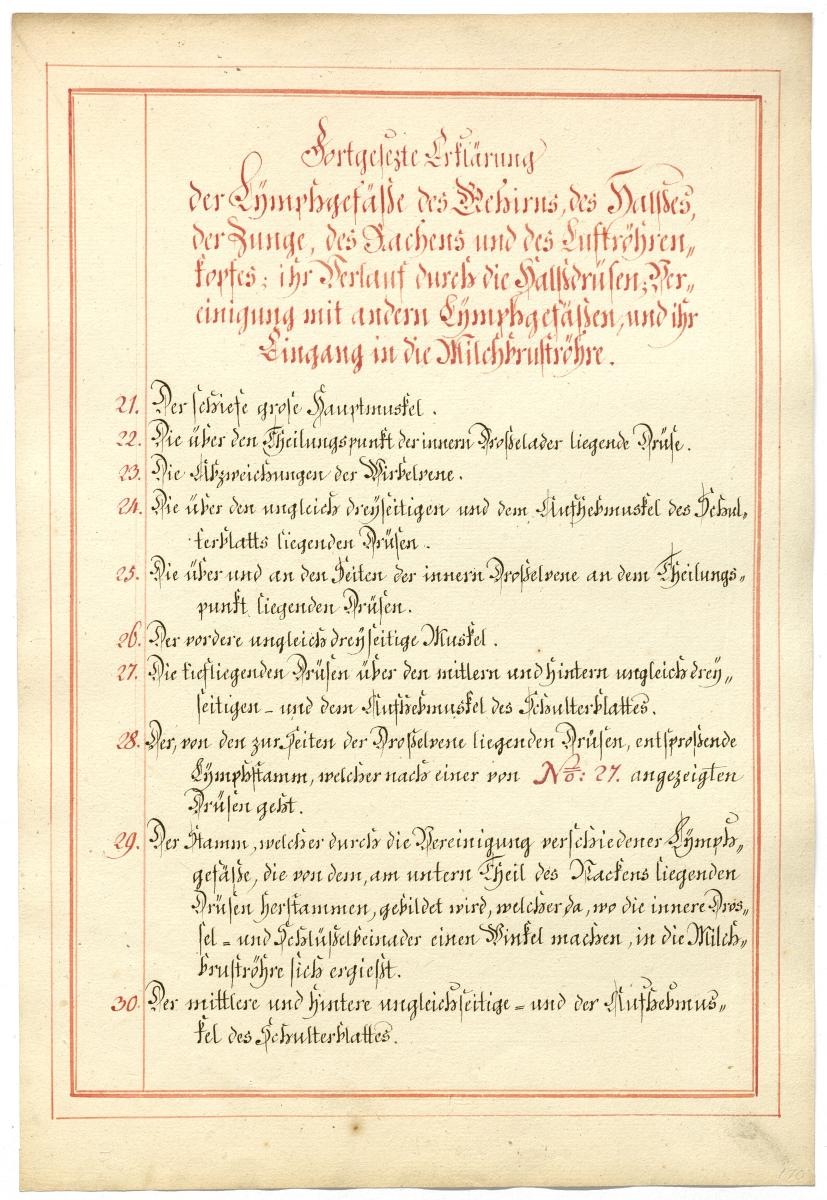 Fortgesezte Erklärung
der Lymphgefäße des Gehirns, des Halßes,
der Zunge, des Rachens und des Luftröhren„
kopfes; ihr Verlauf durch die Halßdrüsen; Ver„
einigung mit andern Lymphgefäßen, und ihr
Eingang in die Milchbruströhre.
21. Der schiefe grose Hauptmuskel.
22. Die über den Theilungspunkt der innern Droßelader liegende Drüse.
23. Die Abzweichungen der Wirbelvene.
24. Die über den ungleich dreyseitigen und dem Aufhebmuskel des Schul„
terblatts liegenden Drüsen.
25. Die über und an den Seiten der innern Droßelvene an dem Theilungs„
punkt liegenden Drüsen.
26. Der vordere ungleich dreyseitige Muskel.
27. Die tiefliegenden Drüsen über den mittlern und hintern ungleich drey„
seitigen - und dem Aufhebmuskel des Schulterblattes.
28. Der, von den zur Seiten der Droßelvene liegenden Drüsen, entsproßende
Lymphstamm, welcher nach einer von No: 27. angezeigten
Drüsen geht.
29. Der Stamm, welcher durch die Vereinigung verschiedener Lymph„
gefäße, die von dem, am untern Theil des Nackens liegenden
Drüsen herstammen, gebildet wird, welcher da, wo die innere Dros„
sel = und Schlüßelbeinader einen Winkel machen, in die Milch„
bruströhre sich ergießt.
30. Der mittlere und hintere ungleichseitige = und der Aufhebmus„
kel des Schulterblattes.
170